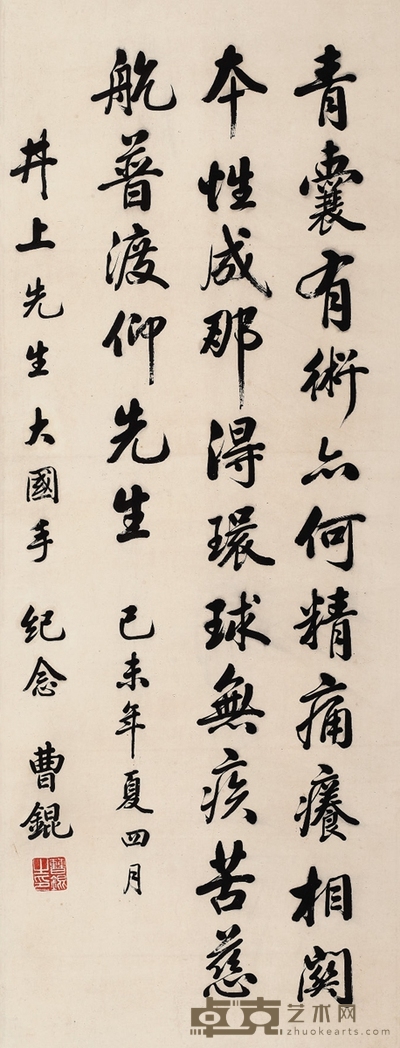 青囊有術亦何精痛癢相関
本性成那得環球無疾苦慈
航普渡仰先生 己未年夏四月
井上先生大國手 紀念 曹錕
卓克艺术网
zhuokearts.com